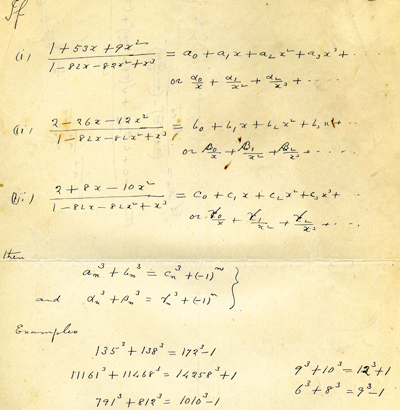 If
(i) (1+53x+9x²)/(1-82x-82x²+x³) = a₀+a₁x+a₂x²+a₃x³+ ...
or α₀/x + α₁/x² + α₂/x³ + ...
(ii) (2-26x-12x²)/(1-82x-82x²+x³) = b₀+b₁x+b₂x²+b₃x³+ ...
or β₀/x + β₁/x² + β₂/x³ + ...
(iii) (2+8x-10x²)/(1-82x-82x²+x³) = c₀+c₁x+c₂x²+c₃x³+ ...
or γ₀/x + γ₁/x² + γ₂/x³ + ...
then
aₙ³+bₙ³ = cₙ³+(-1)ⁿ }
and αₙ³+βₙ³ = γₙ³+(-1)ⁿ
Examples
135³+138³ = 172³-1
9³+10³ = 12³+1
11161³+11468³ = 14258³+1
6³+8³ = 9³-1
791³+812³ = 1010³-1